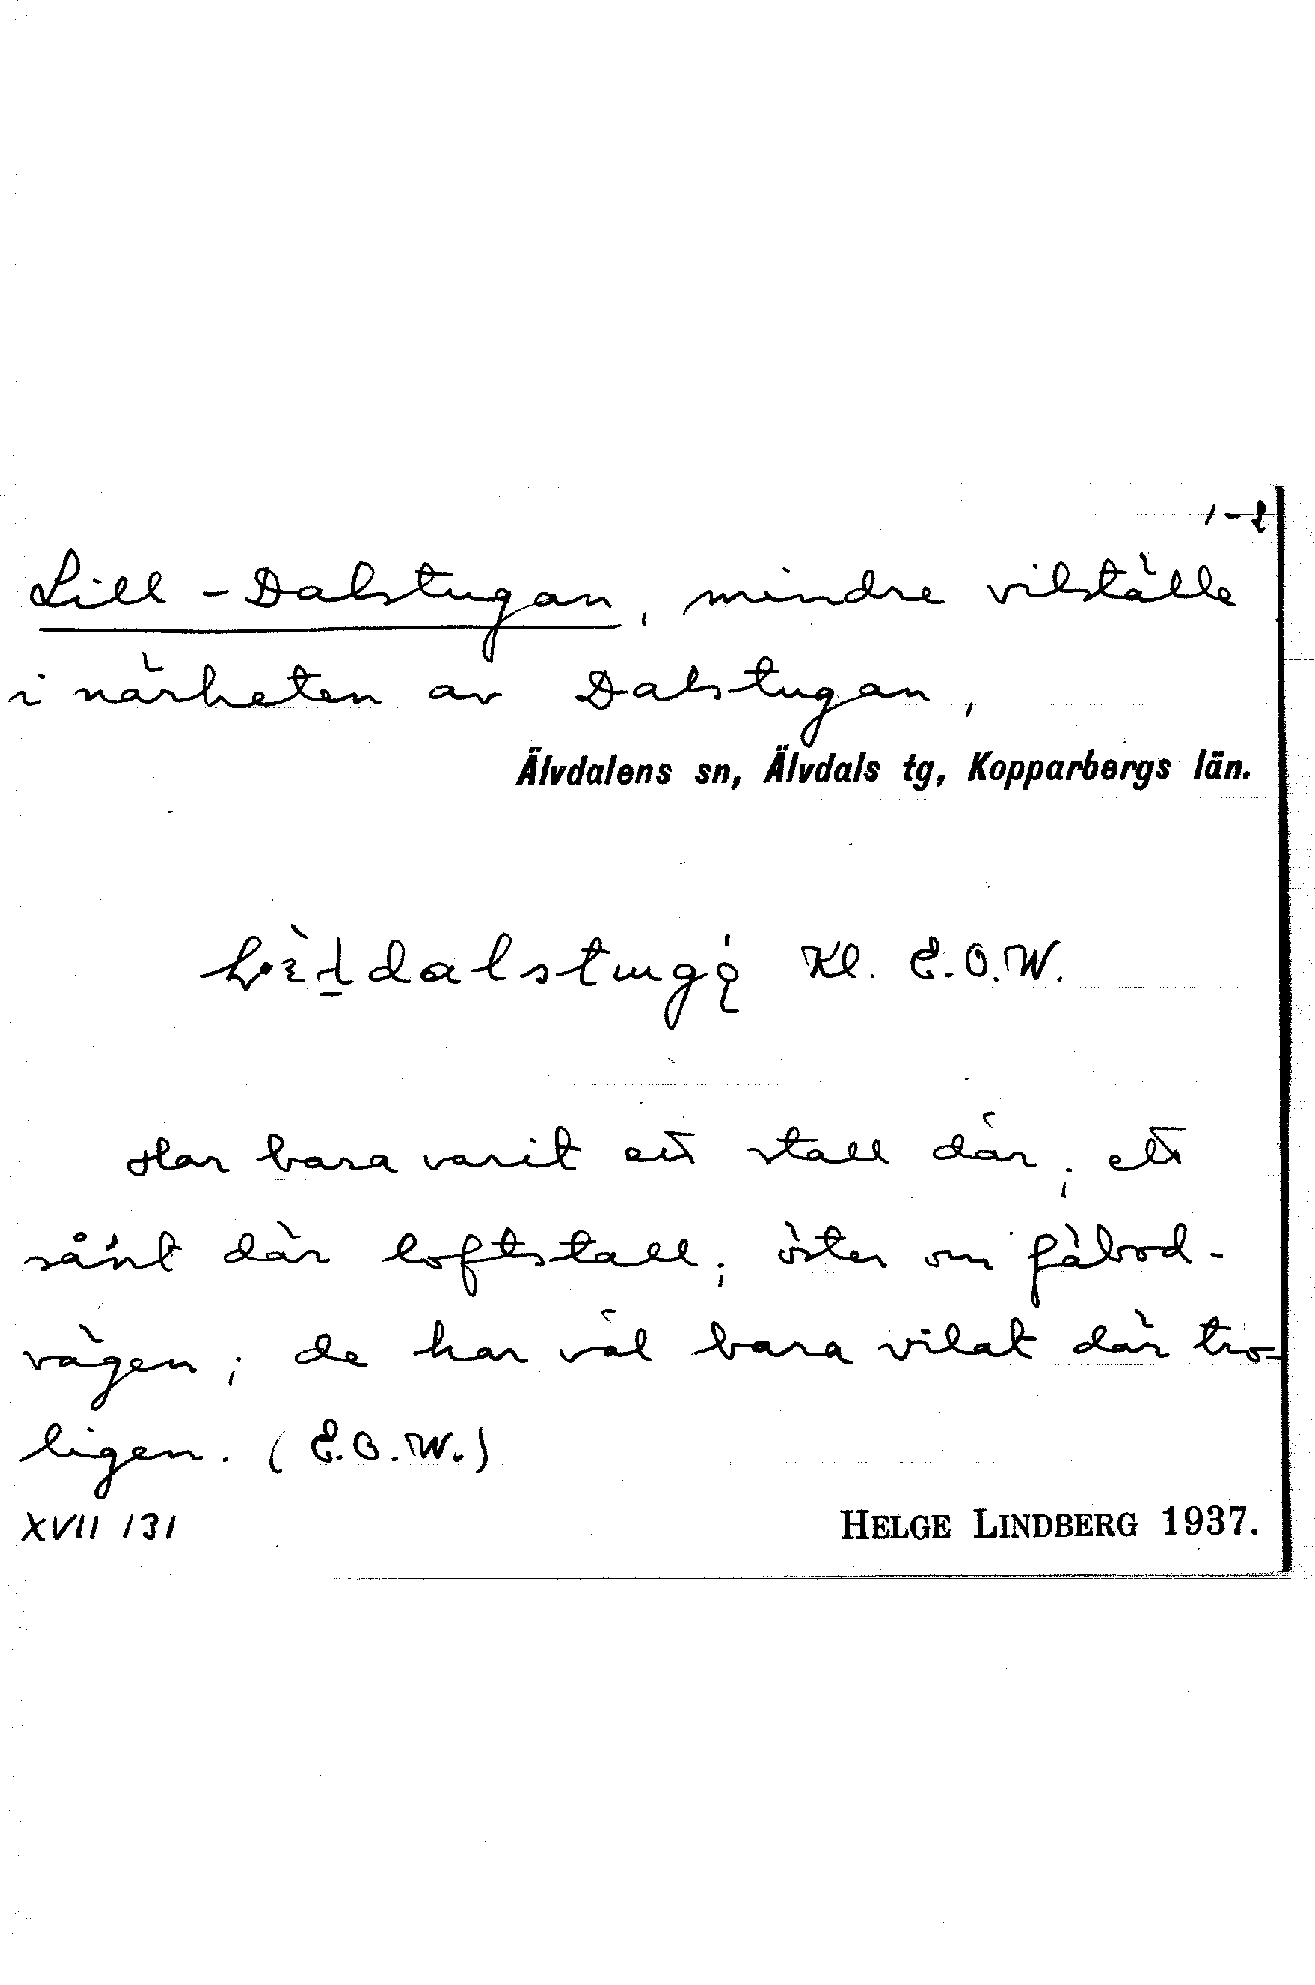 1-2
Lill-Dalstugan, mindre vilställe
i närheten av Dalstugan,
Älvdalens sn, Älvdals tg, Kopparbergs län.
Kl. E.O.W.
Har bara varit ett stall där, ett
sånt där loftstall; öster om fäbod-
vägen; de har väl bara vilat där tro-
ligen. (E.O.W.)
XVII 131
HELGE LINDBERG 1937.